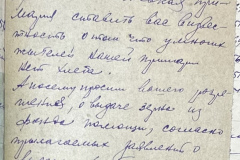 мация ставить вас в извес
тность о том что у многих
жителей нашей
нет хлеба.
А посему просим вашего разре
шения, о выдаче зерна из
фонда помощи, согласно
прилагаемых заявлений о